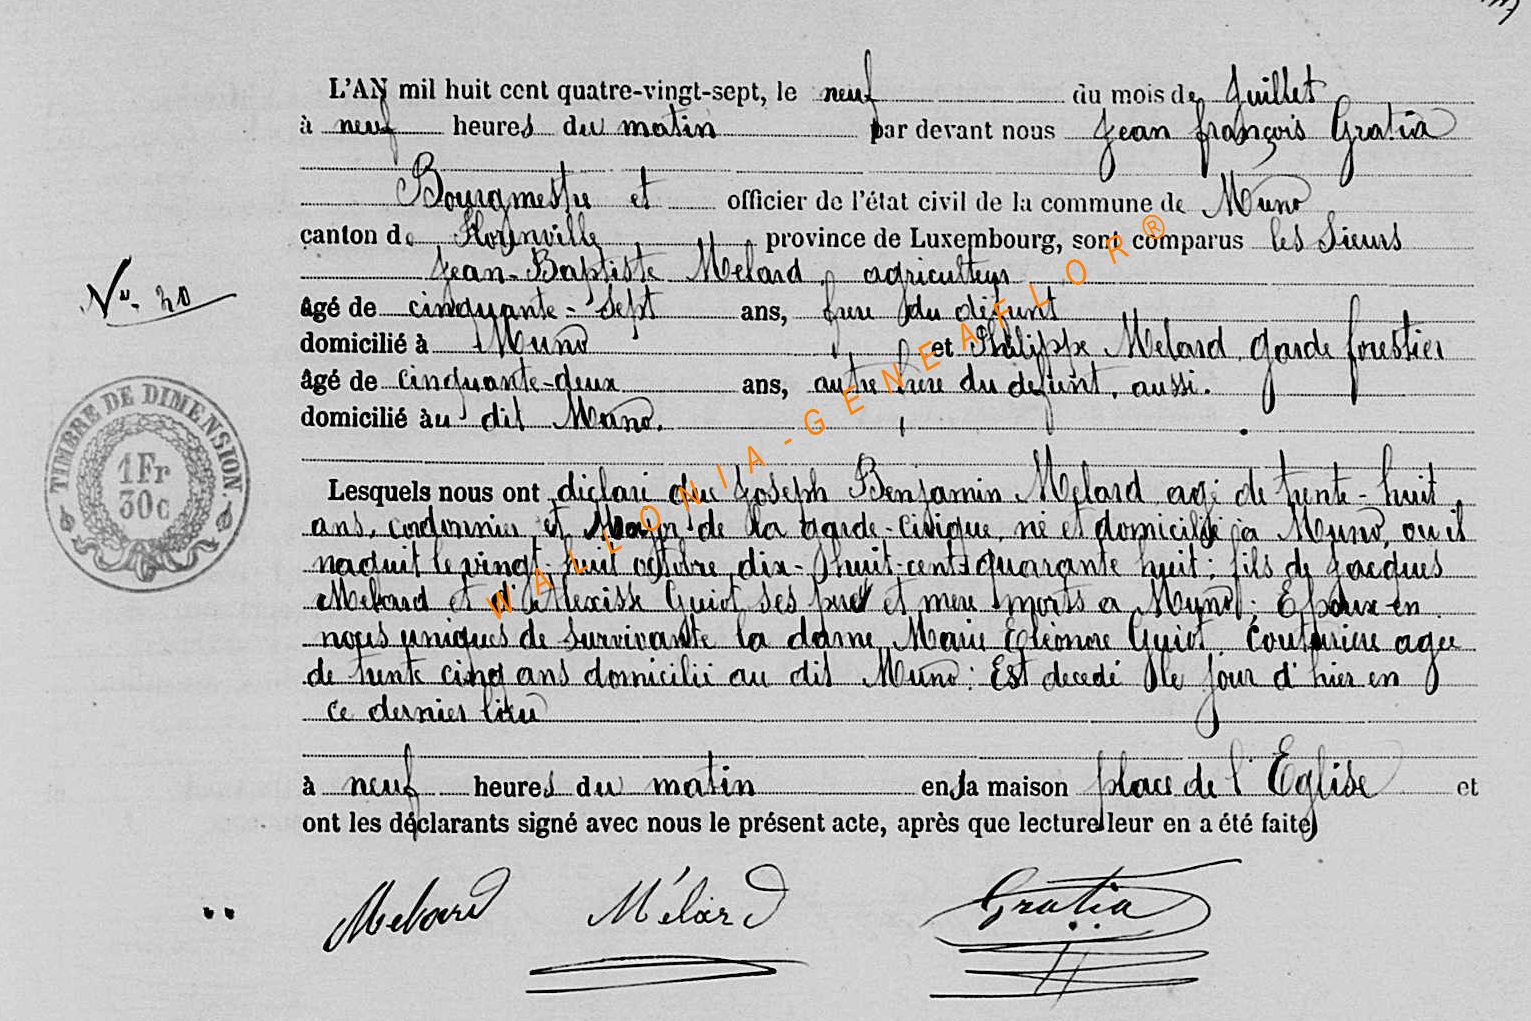 L'AN mil huit cent quatre-vingt-sept, le neuf du mois de Juillet
à neuf heures du matin par devant nous Jean françois Gratia
Bourgmestre et officier de l'état civil de la commune de Muno
canton de Florenville, province de Luxembourg, sont comparus les Sieurs
Jean-Baptiste Melard, agriculteur
âgé de cinquante-sept ans, frere du défunt
domicilié à Muno, et Philippe Melard, garde forestier
âgé de cinquante-deux ans, autre frere du defunt, aussi.
domicilié àu dit Muno.
Lesquels nous ont déclaré que Joseph Benjamin Melard agé de trente-huit
ans, cordonnier et Major de la garde-civique, né et domicilié à Muno, ou il
naquit le vingt-huit octobre dix-huit-cent quarante huit; fils de Jacques
Melard et d'Alexisse Guiot ses pere et mere morts a Muno; Epoux en
noces uniques de survivante la dame Marie Eléonore Guiot, couturiere agée
de trente cinq ans domicilié au dit Muno: Est decedé le jour d'hier en
ce dernier lieu
à neuf heures du matin en sa maison place de l'Eglise et
ont les déclarants signé avec nous le présent acte, après que lecture leur en a été faite
Melard Mélard Gratia
No. 20
TIMBRE DE DIMENSION.
1Fr
30c
WALLONIA-GENEAFLOR®